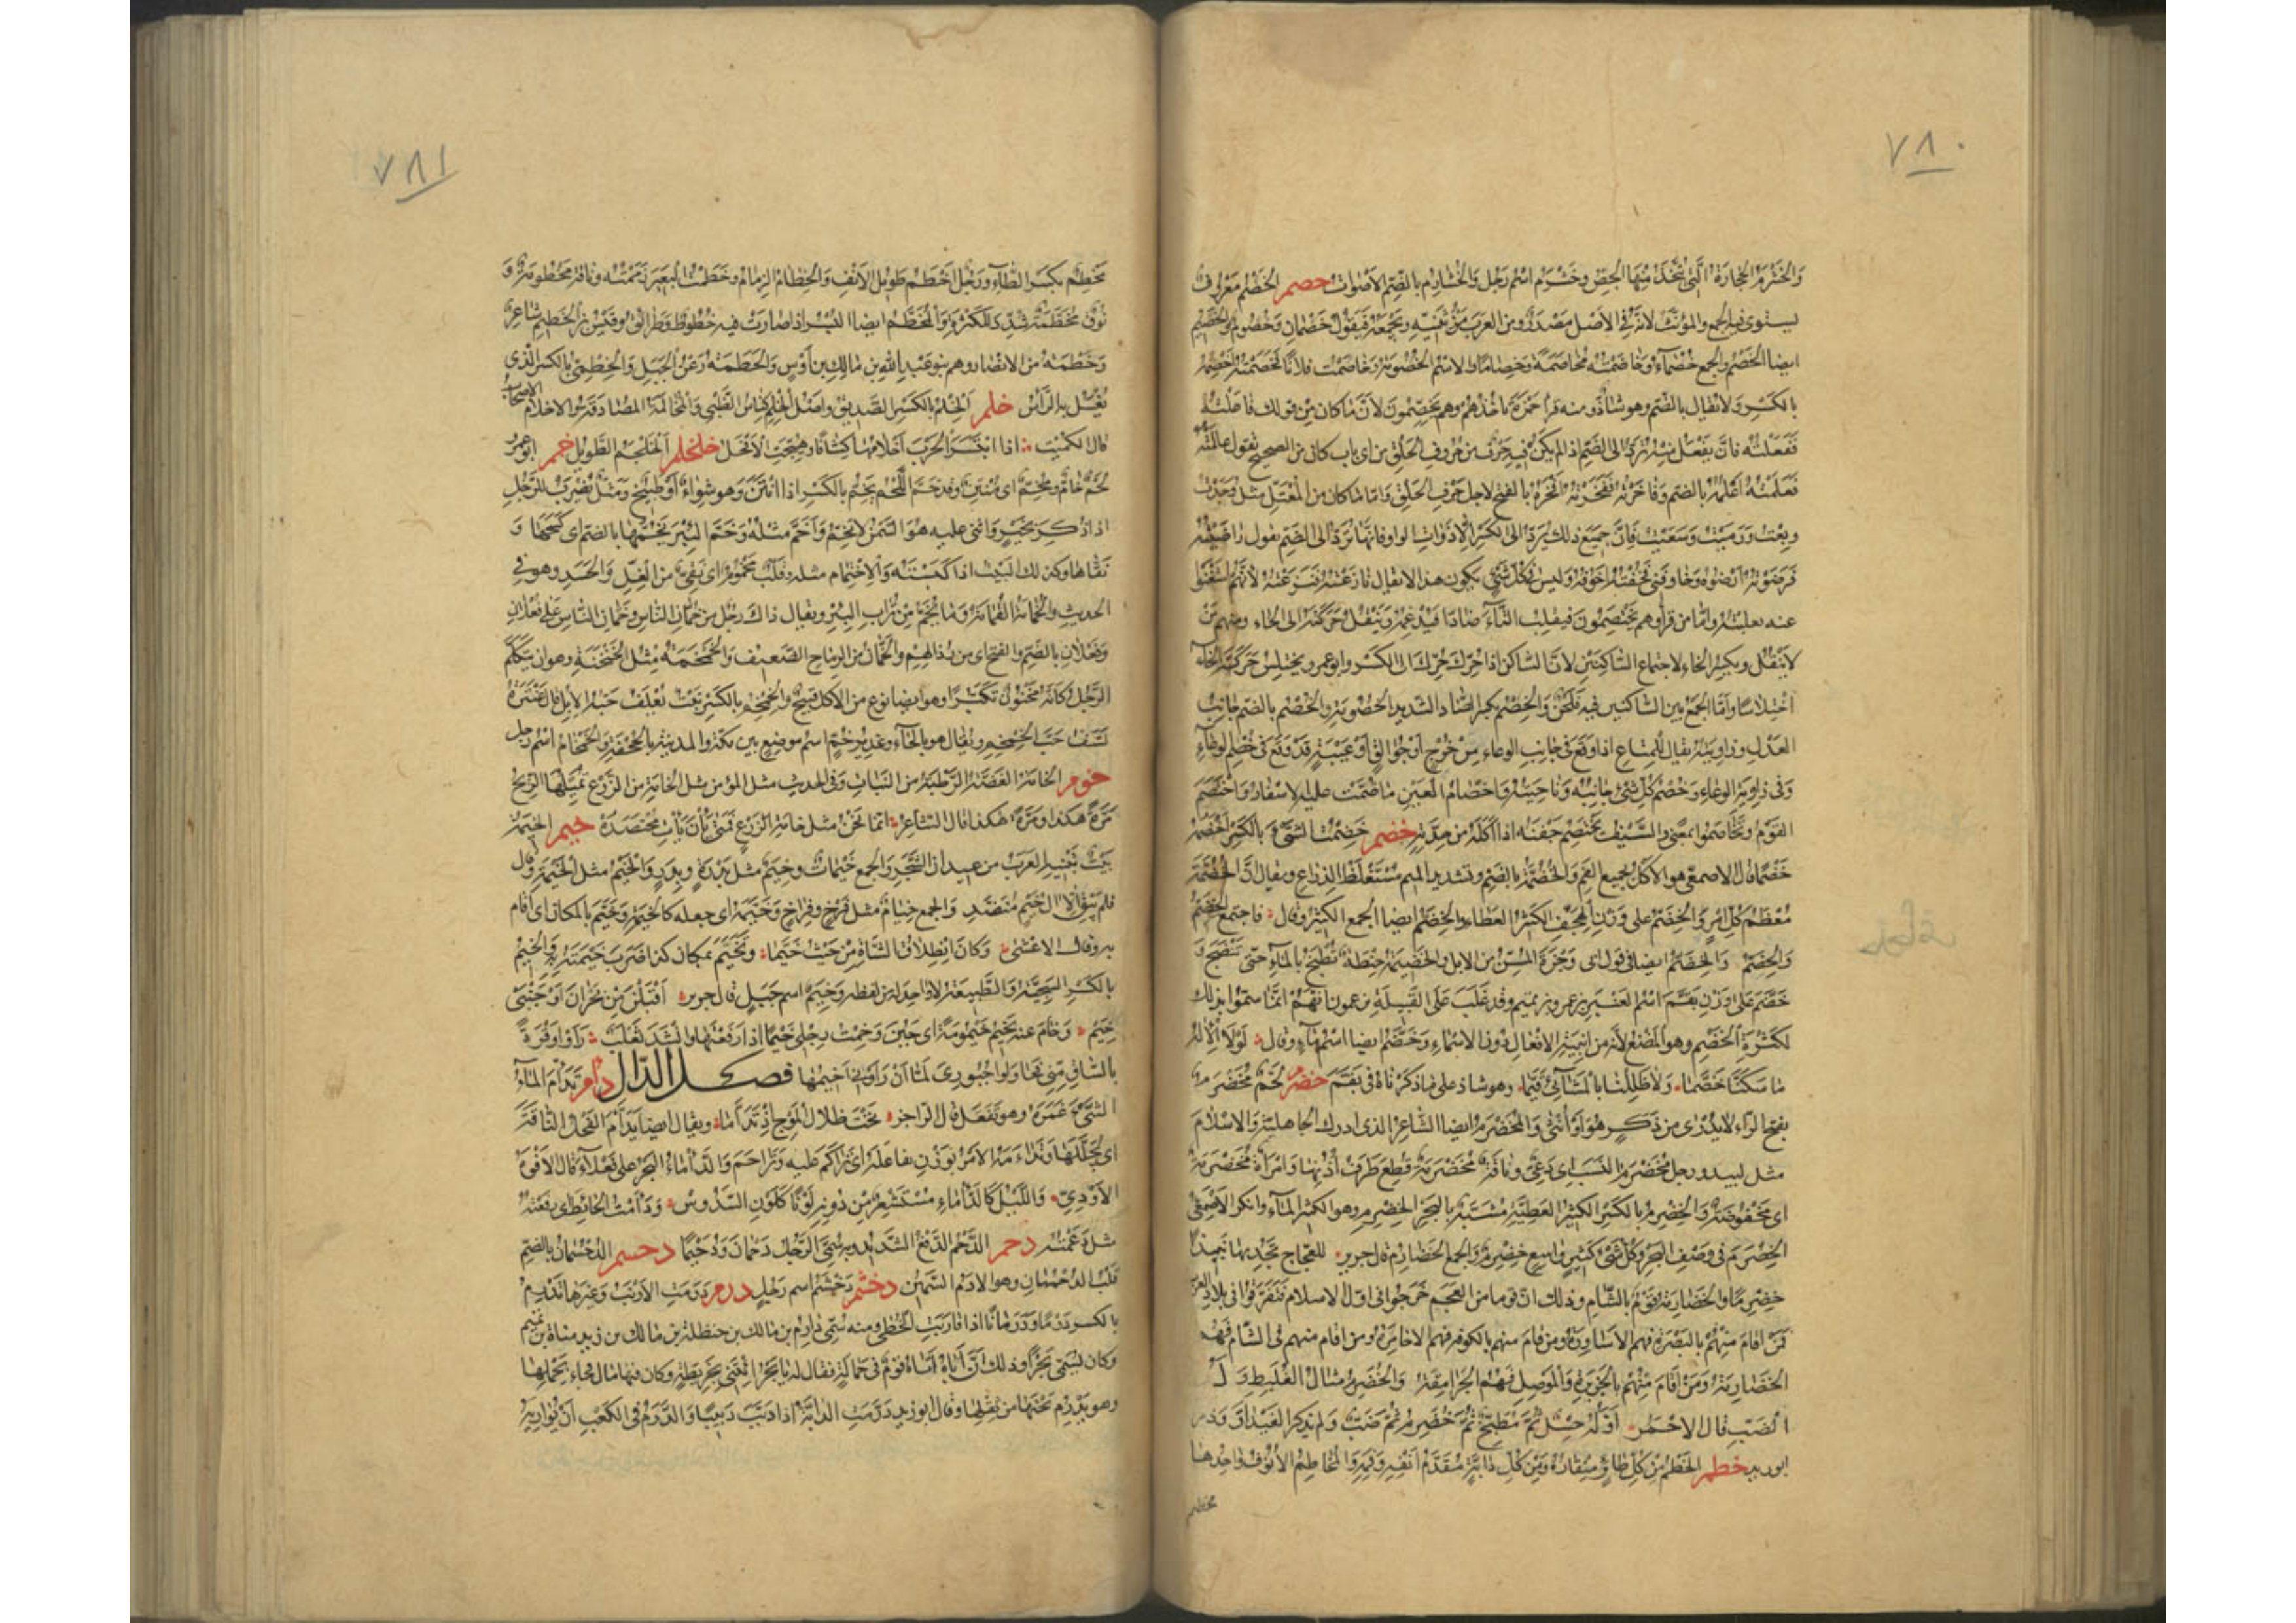 ٧٨٠
وَالخَشْرَمُ الحِجَارَةُ الَّتي تُتَّخَذُ مِنْهَا الجِصُّ وخَشْرَم اسْمُ رَجُل وَالخُشَارِمُ بالضّم الاَصْوات خصم الخَصْمُ مَعْرُوفٌ
يستوى فيه الجمع والمؤنّث لانّه في الأصْل مَصْدَرٌ ومن العَرَب مَنْ يُثَنِّيه ويَجْمَعُه فَيَقُولُ خَصْمَانِ وَخُصُوم والخَصِيم
ايضا الخَصْمُ والجمع خُصَمَآء وَخَاصَمْتُه مُخَاصَمَةً وَخِصَامًا والاسْم الخُصُومَة وَخَاصَمْت فلانًا فَخَصَمْتُه أَخْصِمُه
بالكَسْرِ وَلا يُقال بالضّم وهو شاذّ ومنه قرأ حَمْزَة تَأخُذُهُمْ وهم يَخْصِمُونَ لأنَّ مَا كان مِنْ قولك فَاعَلْتُه
فَفَعَلْتُه فانَّ يَفْعَل مِنْهُ يُرَدُّ الى الضَّمِّ اذا لم يَكُنْ فيه حَرْف من حُرُوفِ الحَلْقِ من اى باب كان من الصحيح تقول عالمْتُه
فَعَلَمْتُهُ أَعْلُمُه بالضم وَفَاخَرْتُه فَفَخَرْتُه أَفْخَرُهُ بالفتح لاجل حَرْفِ الحَلْقِ وَامّا مَا كان من المُعْتَلّ مثل وَجَدْتُ
وبِعْتُ وَرَمَيْتُ وَسَعَيْتُ فَإنَّ جَمِيعَ ذلك يُرَدّ الى الكَسْرِ الّا ذَوَاتِ الواو فانّها تُرَدّ الى الضّم تقول رَاضَيْتُه
فَرَضَوْتُه أَرْضُوهُ وَخَاوَفَنى فَخُفْتُهُ أَخُوفُه وَليسَ فى كلّ شَئٍ يكون هذا لا يقال نَازَعْتُه فَنَزَعْتُه لأنَّهُم اسْتَغْنَوا
عنه بغلبْتُه وَامّا من قرأ وهم يَخَصِّمُونَ فيقلب التَّاءَ صَادًا فَيُدْغِمُهُ وَيَنْقُلُ حَرَكَتَهُ الى الخاء ومنهم مَنْ
لا يَنْقُل ويكسِر الخاء لاجتماع السّاكنَيْنِ لانَّ السَّاكنَ اذا حُرِّكَ حُرِّكَ الى الكَسْر وابو عمرو يختلِسُ حَرَكَة الخَاء
اخْتِلاسًا وَامّا الجَمْعُ بين السّاكنين فيه فَلَحْنٌ وَالخَصِمُ بكسر الصّاد الشّديد الخُصُومَة وَالخُصْمُ بالضّم جَانِبُ
العِدْلِ وزاوِيَتُه يقال للمتَاعِ اذا وَقَعَ فى جَانِبِ الوِعاء مِنْ خُرْجٍ أوْ جُوَالِقٍ أَوْ عَيْبَةٍ قَدْ وَقَعَ فى خُصْمِ الوِعَآءِ
وَفى زاوِيَةِ الوِعَاءِ وَخُصْمُ كلِّ شَئٍ جَانِبُه وَنَاحِيَتُه وَأَخْصَامُ العَيْنِ مَا ضَمَّتْ عليه الاسْفَارُ وَاخْتَصَمَ
القَوْمُ وتَخَاصَمُوا بمعنًى والسَّيْفُ يَخْتَصِمُ جَفْنَه اذا أكَلَهُ من حِدَّتِه خضم خَضِمْتُ الشَّئَ بالكَسْرِ أَخْضَمُه
خَضْمًا قال الاصمعى هو الاكلُ بجميع الفَمِ وَالخُضُمَّةُ بالضم وتشديد الميم مُسْتَغْلَظُ الذِّرَاعِ ويقال انَّ الخُضُمَّة
مُعْظَمُ كلِّ امْرٍ وَالخِضَمُّ على وَزْنِ الهِجَفِّ الكَثِيْرُ العَطاءِ والخِضَمُّ ايضا الجمع الكثير وقال فاجتمع الخِضَمُّ
وَالخِضَمُّ وَالخِضَمُّ ايضا في قول ابى وَجْزَةَ المُسِنّ من الابل والخَضِيمَةُ حِنْطَةٌ تُطْبَخُ بالمَآءِ حَتّى تَنْضَجَ وَ
خَضَّمُ عَلى وَزْنِ بَقَّمَ اسْمُ العَنْبَر بن عمرو بن تميم وقد غَلَبَ عَلَى القَبِيلَةِ يزعمون انَّهُمْ انَّمَا سمّوا بذلك
لكَثْرَةِ الخَضْمِ وهو المَضْغُ لأنّه من ابْنِيَةِ الافْعَالِ دُونَ الاسْمَاءِ وَخَضَّمُ ايضا اسْمُ مَآءٍ وقال لَوْلَا الإلهُ
مَا سَكَنَّا خَضَّمَا وَلا ظَلِلْنَا بالمَشَآئِى قُيَّمَا وهو شاذ على مَا ذكَرْنَاهُ فى بَقَّمَ خضرم لَحْمٌ مُخَضْرَمٌ
بفتح الرَّاء لا يُدْرَى من ذَكَرٍ هُوَ اَوْ أُنثَى وَالمُخَضْرَمُ ايضا الشَّاعِرُ الذى ادرك الجاهليّة وَالاسْلامَ
مثل لبيد ورجل مُخَضْرَمُ النَّسَبِ اى دَعِىّ وناقَة مُخَضْرَمَةٌ قُطِعَ طَرَفُ أُذُنِهَا وَامْرَأَةٌ مُخَضْرَمَةٌ
اى مَخْفُوضَةٌ وَالخِضْرِمُ بالكَسْرِ الكَثِيْرُ العَطِيَّةِ مُشَبَّهٌ بالبَحْرِ الخِضْرِمِ وهو الكَثِيْرُ المَآء وانكر الاصْمَعِىّ
الخِضْرِمَ فى وَصْفِ البَحْرِ وَكلُّ شَئٍ كَثيرٍ وَاسِعٍ خِضْرِمٌ وَالجمع الخَضَارِمُ قال جرير
خِضْرِمًا وَالخَضَارِمَةُ قَوْمٌ بالشَّام وذلك انّ قوما من العَجَم خَرَجُوا فى اوّل الاسلام فَتَفَرَّقُوا فى بلادِ العَرَب
فَمَنْ اقامَ مِنْهُمْ بالبَصْرَةِ فهم الاسَاوِرَة وَمن اقام منهم بالكوفة فهم الاحَامِرَة ومن اقام منهم فى الشَّام فَهُم
الخَضَارِمَة وَمَنْ اقَامَ مِنْهُمْ بالجَزِيْرَةِ وَالمَوصِلِ فَهُمُ الجَرَامِقَة وَالخُضَرِمُ مثال العُلَبِطِ وَلَدُ
الضَّبِ قال الاحْمَر أَوَّلُهُ حِسْلٌ ثُمَّ مُطَبِّخٌ ثُمَّ خُضَرِمٌ ثُمَّ ضَبٌّ وَلم يذكر الغَيْدَاقَ وَذكره
ابو زيد خطم الخَطْمُ مِنْ كلِّ طائرٍ مِنْقَارُهُ وَمِنْ كلِّ دَابَّةٍ مُقَدَّمُ أَنْفِهِ وَفَمِه وَالمَخَاطِمُ الأُنُوفُ وَاحِدُهَا
مخطم
٧٨١
مَخْطِمٌ بكَسْرِ الطَّآءِ ورَجُلٌ اَخْطَمُ طَوِيْلُ الاَنْفِ وَالخِطَامُ الزِّمامُ وخَطَمْتُ البَعِيرَ زَمَمْتُه وناقة مَخْطُومَةٌ وَ
نُوق مُخَطَّمَةٌ شُدِّدَ للكَثْرَةِ وَالمُخَطَّمُ ايضا البُسْرُ اذا صَارَتْ فيه خُطُوطٌ وَطَرَائِقُ وقَيْسُ بن الخَطِيم شاعِرٌ
وَخَطْمَةُ من الانصَار وهم بنو عَبْدِ اللهِ بن مَالِكِ بن أَوْسٍ وَالخَطْمَةُ رَعْنُ الجَبَل وَالخِطْمِىُّ بالكَسْرِ الّذى
يُغْسَلُ به الرَّأْسُ خلم الخِلْمُ بالكَسْرِ الصَّدِيقُ وَاصْلُ الخِلْمِ كِنَاسُ الظَّبْىِ وَالمُخَالَمَةُ المُصَادَقَة والاخلامُ الاصْحَابُ
قال الكمَيْت اذا ابْتَسَرَ الحَرْبَ أَخْلَامُهَا كِشَافًا وهُيِّجَتِ الأَفْحُلُ خلخلم الخَلْجَمُ الطَّوِيلُ خمم ابو عمرو
لَحْمٌ خَامٌّ ومُخِمٌّ اى مُنْتِنٌ وقد خَمَّ اللَّحْمُ يَخِمُّ بالكَسْرِ اذا انْتَنَ وَهو شِواءٌ أَوْ طَبِيخٌ وَمَثَل يُضْرَبُ للرَّجُلِ
اذا ذُكِرَ بخَيْرٍ وَاثْنِىَ عليه هُوَ السَّمْنُ لا يَخُمُّ وَأَخَمَّ مثلُه وَخَمَّ البِئْرَ يَخُمُّهَا بالضمّ اى كَسَحَهَا وَ
نَقَّاهَا وكذلك البَيْت اذا كَنَسْتَه وَالاخْتِمَام مثله وقَلْبٌ مَخْمُومٌ اى نَقِىّ من الغِلِّ وَالحَسَدِ وهو في
الحديث والخُمَامَةُ القُمَامَةُ وَمَا يُخَمُّ مِنْ تُرَابِ البِئْرِ ويقال ذاك رَجُل من خُمَّانِ النّاسِ وخَمَّانِ النَّاس عَلى فُعْلانٍ
وَفَعْلَانٍ بالضّم والفتح اى من رُذَالِهِمْ والخَمَّانُ من الرِّمَاحِ الضَّعيف وَالخَمْخَمَةُ مِثْلُ الخَنْخَنَةِ وهو ان يتكلّم
الرَّجُل كأنّه مَخْنُونٌ تَكَبُّرًا وهو ايضا نوع من الاكل قبيح وَالخِمْخِمُ بالكَسْرِ نَبْت تُعْلَفُ حَبَّه الإبل قال عَنْتَرَة
تَسَفُّ حَبَّ الخِمْخِمِ ويقال هو بالحآء وغَدِير خُمّ اسم موضع بين مكّة والمدينة بالجُحْفَة وَالخَمْخَام اسْم رجل
خوم الخَامَة الغَضَّةُ الرَّطْبَةُ من النَّبَاتِ وَفى الحديث مثل المؤمن مثل الخَامَةِ من الزَّرْع تُمَيِّلُهَا الرِّيْحُ
مَرَّةً هكذا وَمَرَّةً هكذا قال الشّاعر انّما نَحْنُ مثل خَامَةِ الزَّرْعِ فَمَتى يَأْنِ يَأْتِ مُحْتَصِدُهْ خيم الخَيْمَة
بَيْتٌ تَبْنِيهِ العَرَبُ من عِيدانِ الشَّجَرِ وَالجمع خَيْمَاتٌ وخِيَمٌ مثل بَدْرَةٍ وبِدَرٍ وَالخَيْمُ مثل الخَيْمَةِ وقال
فلم يَبْقَ الّا آل خَيْمٍ مُنَضَّدِ وَالجمع خِيَامٌ مثل فَرْخٍ وفِرَاخٍ وَخَيَّمَهُ اى جعله كالخَيْمَةِ وَخَيَّمَ بالمكان اى اقام
به وقال الاعشى وَكانَ انْطِلاقُ الشَّاةِ مِنْ حَيْثُ خَيَّمَا وتَخَيَّمَ بمكان كذا ضَرَبَ خَيْمَتَهُ بِهِ وَالخِيمُ
بالكسْرِ السَّجِيَّةُ وَالطَّبِيعَةُ لا وَاحِدَ له من لفظه وَخِيمٌ اسم جَبَلٍ قال جرير أَقْبَلْنَ مِنْ نَجْرَانَ أَوْ جَنْبَىْ
خِيَمْ وَخَامَ عنه يَخِيمُ خَيْمُومَةً اى جَبُنَ وَخِمْتُ رِجْلى خَيْمًا اذا رَفَعْتَهَا وانْشَدَ ثَعْلَبٌ رَأَوْا وَقْرَةً
بالسَّاقِ مِنّى فَحَاوَلُوا جُبُورِىَ لَمَّا أَنْ رَأَوْنِى أَخِيمُهَا فصل الدّال دام تَدَأَّمَ المَاءُ
الشَّىْءَ غَمَرَهُ وهو تَفَعَّلَ قال الراجز تَحْتَ ظِلالِ المَوْجِ إذْ تَدَأَّمَا ويقال ايضا تَدَأَّمَ الفَحْلُ النَّاقَةَ
اى تَجَلَّلَهَا وَتَدَاءَمَهُ الامْرُ بوَزْنِ تفاعَلَهُ اى تَرَاكَمَ عليه وَتَزَاحَمَ وَالدَّأْمَاءُ البَحْرُ على فَعْلآءَ قال الافْوَهُ
الأَوْدِىّ وَاللَّيْلُ كَالدَّأْمَاءِ مُسْتَشْعِرٌ مِنْ دُونِهِ لَوْنًا كَلَوْنِ السَّدُوسْ وَدَأَمْتُ الحائطَ اى رَفَعْتُهُ
مثل دَعَمْتُه دحم الدَّحْمُ الدَّفْعُ الشَّدِيْدُ وبه سُمِّىَ الرَّجُلُ دَحْمَانَ وَدُحَيْمًا دحسم الدُّحْسُمَان بالضمّ
قَلْبُ الدُّحْمُسَانِ وهو الآدَم السَّمِيْن دخشم دَخْشَمٌ اسم رَجُلٍ درم دَرَمَتِ الارْنَبُ وَغَيْرُهَا تَدْرِمُ
بالكسر دَرْمًا وَدَرَمَانًا اذا قَارَبَتِ الخُطَى ومنه سُمِّى دَارِمُ بن مالك بن حنظلة بن مالك بن زيد مناة بن تميم
وكان يُسَمَّى بَحْرًا وذلك أَنَّ أَبَاهُ أَتَاهُ قَوْمٌ فى حَمَالَةٍ فقال له يا بَحْرُ ائْتِنِى بخَرِيطَةٍ وكان فيها مَال فجاء يَحْمِلُهَا
وهو يَدْرِمُ تَحْتَهَا من ثِقَلِهَا وقال ابو زيد دَرَمَتِ الدابّة اذا دَبَّتْ دَبِيبًا وَالدَّرَمُ فى الكَعْبِ أَنْ يُوَارِيَهُ